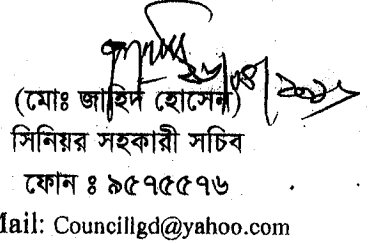 (মোঃ জাহিদ হোসেন)
সিনিয়র সহকারী সচিব
ফোন ঃ ৯৫৭৫৫৭৬
Mail: Councillgd@yahoo.com